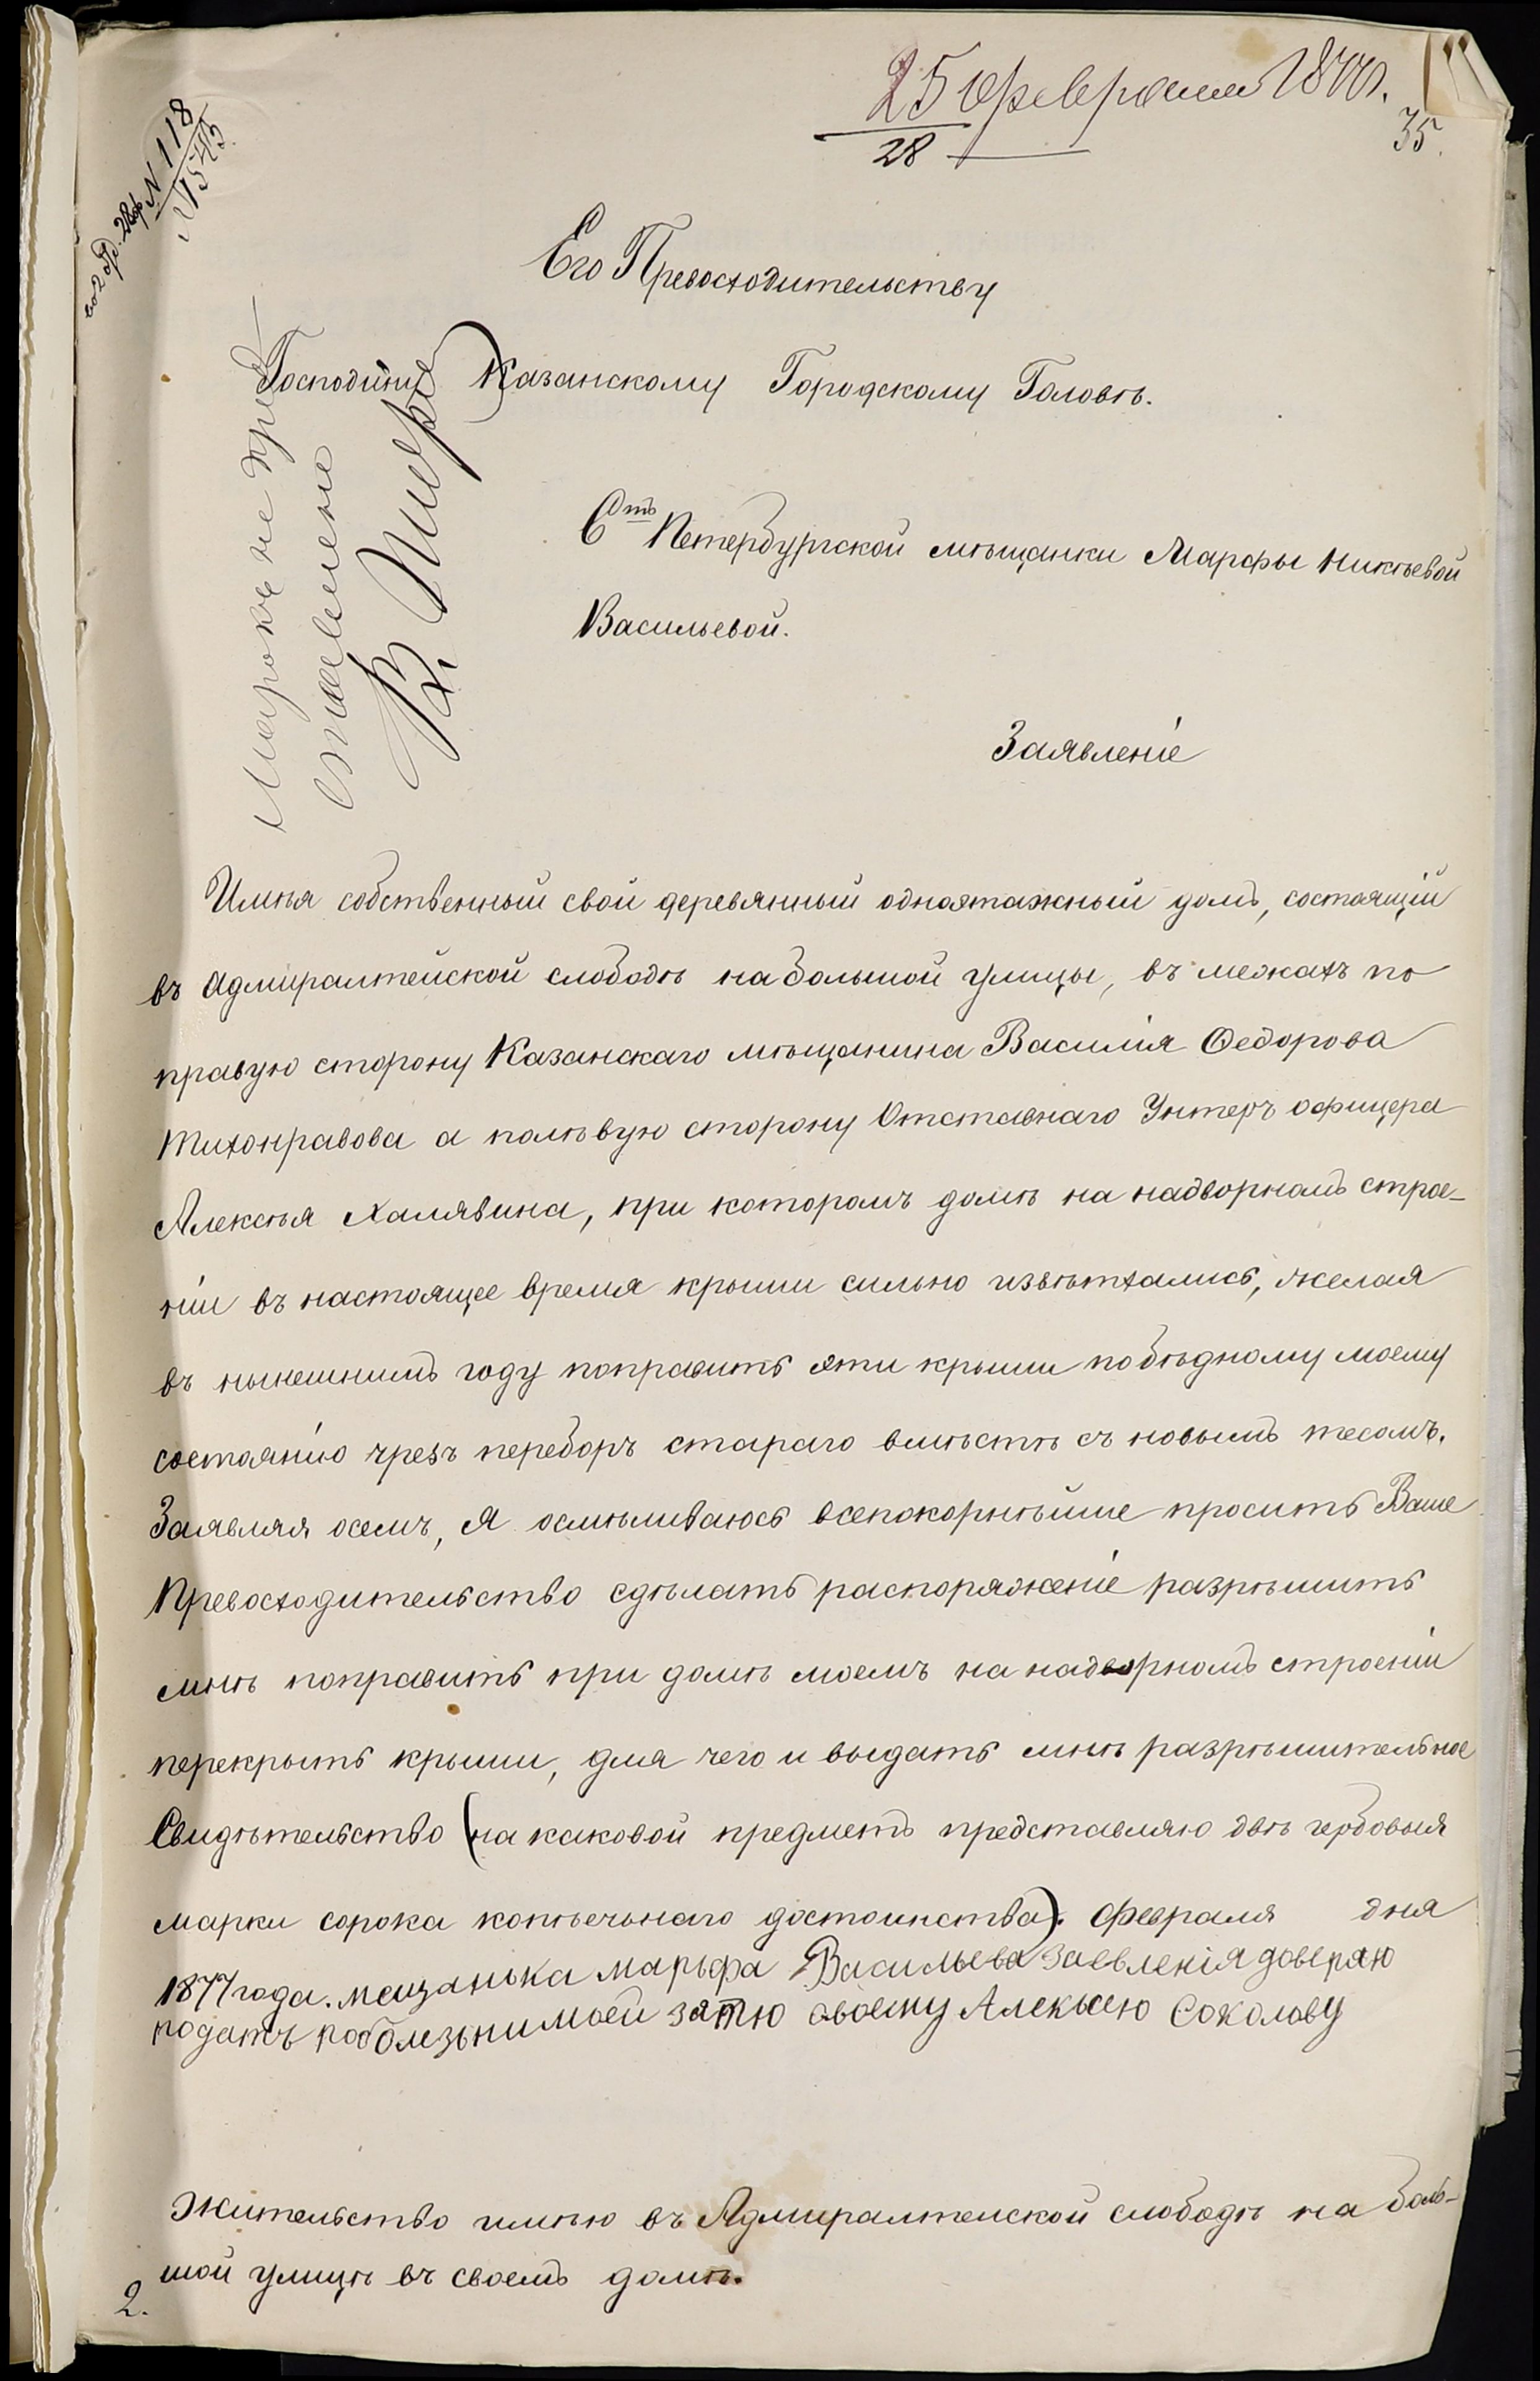 25 февраля 1877 г.
28
35.
N 118
N 1545.
Его Превосходительству
Господину Казанскому Городскому Головѣ.
Стъ Петербургской мѣщанки Марфы Никѣевой
Васильевой.
Заявленіе
Имѣя собственный свой деревянный одноэтажный домъ, состоящій
въ Адмиралтейской слободѣ на большой улицы, въ межахъ по
правую сторону Казанскаго мѣщанина Василія Ѳедорова
Тихонравова а полѣвую сторону Отставнаго Унтеръ офицера
Алексѣя Халявина, при которомъ домѣ на надворномъ строе-
ніи въ настоящее время крыши сильно извѣтхались, желая
въ нынешнимъ году поправить эти крыши по бѣдному моему
состоянію чрезъ переборъ стараго вмѣстѣ съ новымъ тесомъ.
Заявляя осемъ, я осмѣливаюсь всепокорнѣйше просить Ваше
Превосходительство сдѣлать распоряженіе разрѣшить
мнѣ поправить при домѣ моемъ на надворномъ строеніи
перекрыть крыши, для чего и выдать мнѣ разрѣшительное
Свидѣтельство (на каковой предметъ представляю двѣ гербовыя
марки сорока копѣечьнаго достоинства). Февраля дня
1877 года. мещанька марьфа Васильева заевленія доверяю
подать поболезьни моей зятю своему Алексею Соколову
Жительство имѣю въ Адмиралтейской слободѣ на боль-
шой улицѣ въ своемъ домѣ.
2.
Марокъ не при